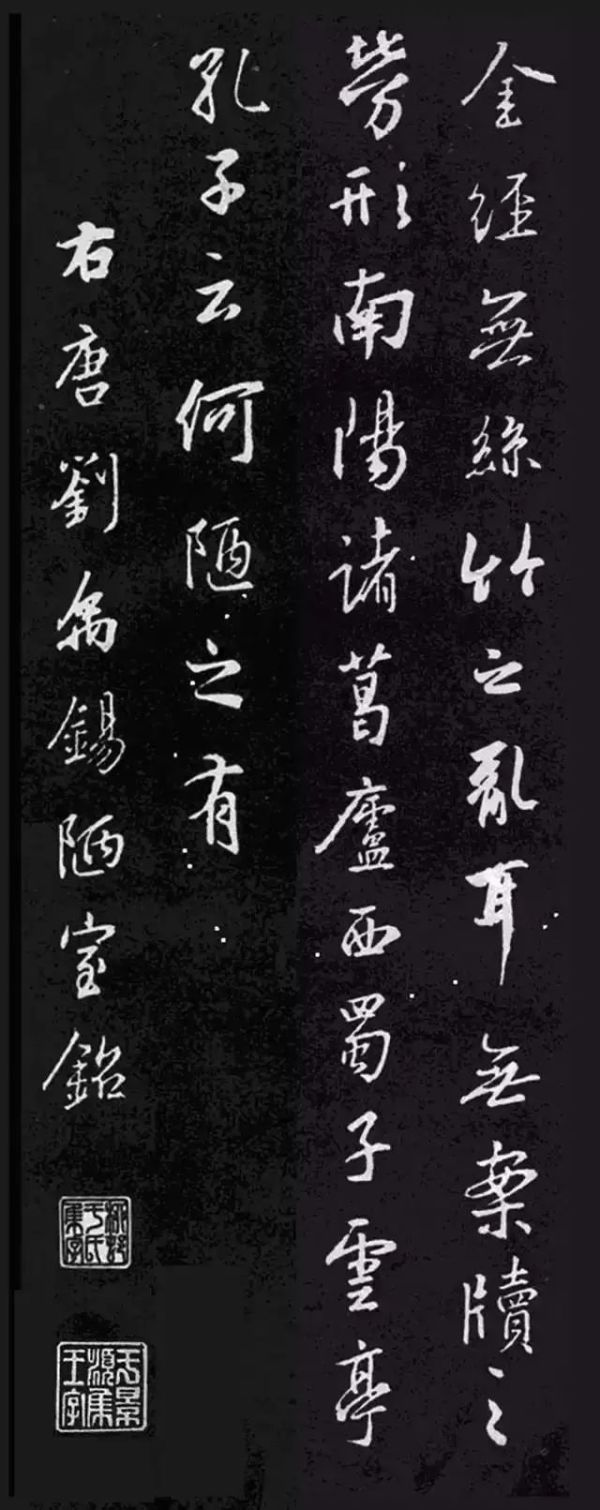 金經無絲竹之亂耳無案牘之
勞形南陽諸葛廬西蜀子雲亭
孔子云何陋之有
右唐劉禹錫陋室銘